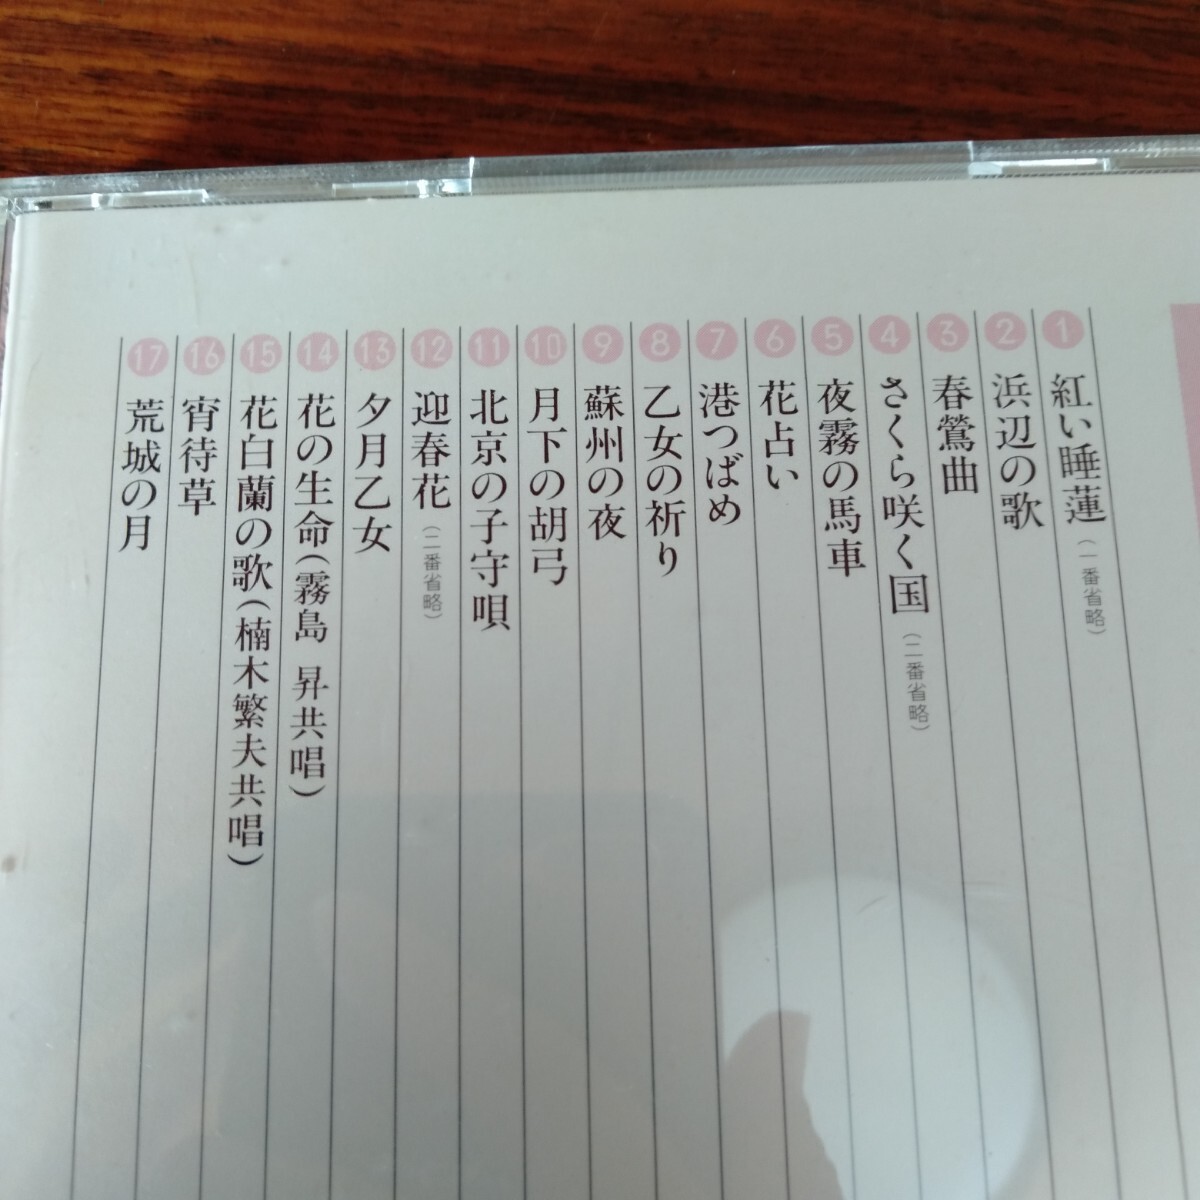 1 紅い睡蓮(一番省略)
2 浜辺の歌
3 春鶯曲
4 さくら咲く国(二番省略)
5 夜霧の馬車
6 花占い
7 港つばめ
8 乙女の祈り
9 蘇州の夜
10 月下の胡弓
11 北京の子守唄
12 迎春花(二番省略)
13 夕月乙女
14 花の生命(霧島 昇共唱)
15 花白蘭の歌(楠木繁夫共唱)
16 宵待草
17 荒城の月